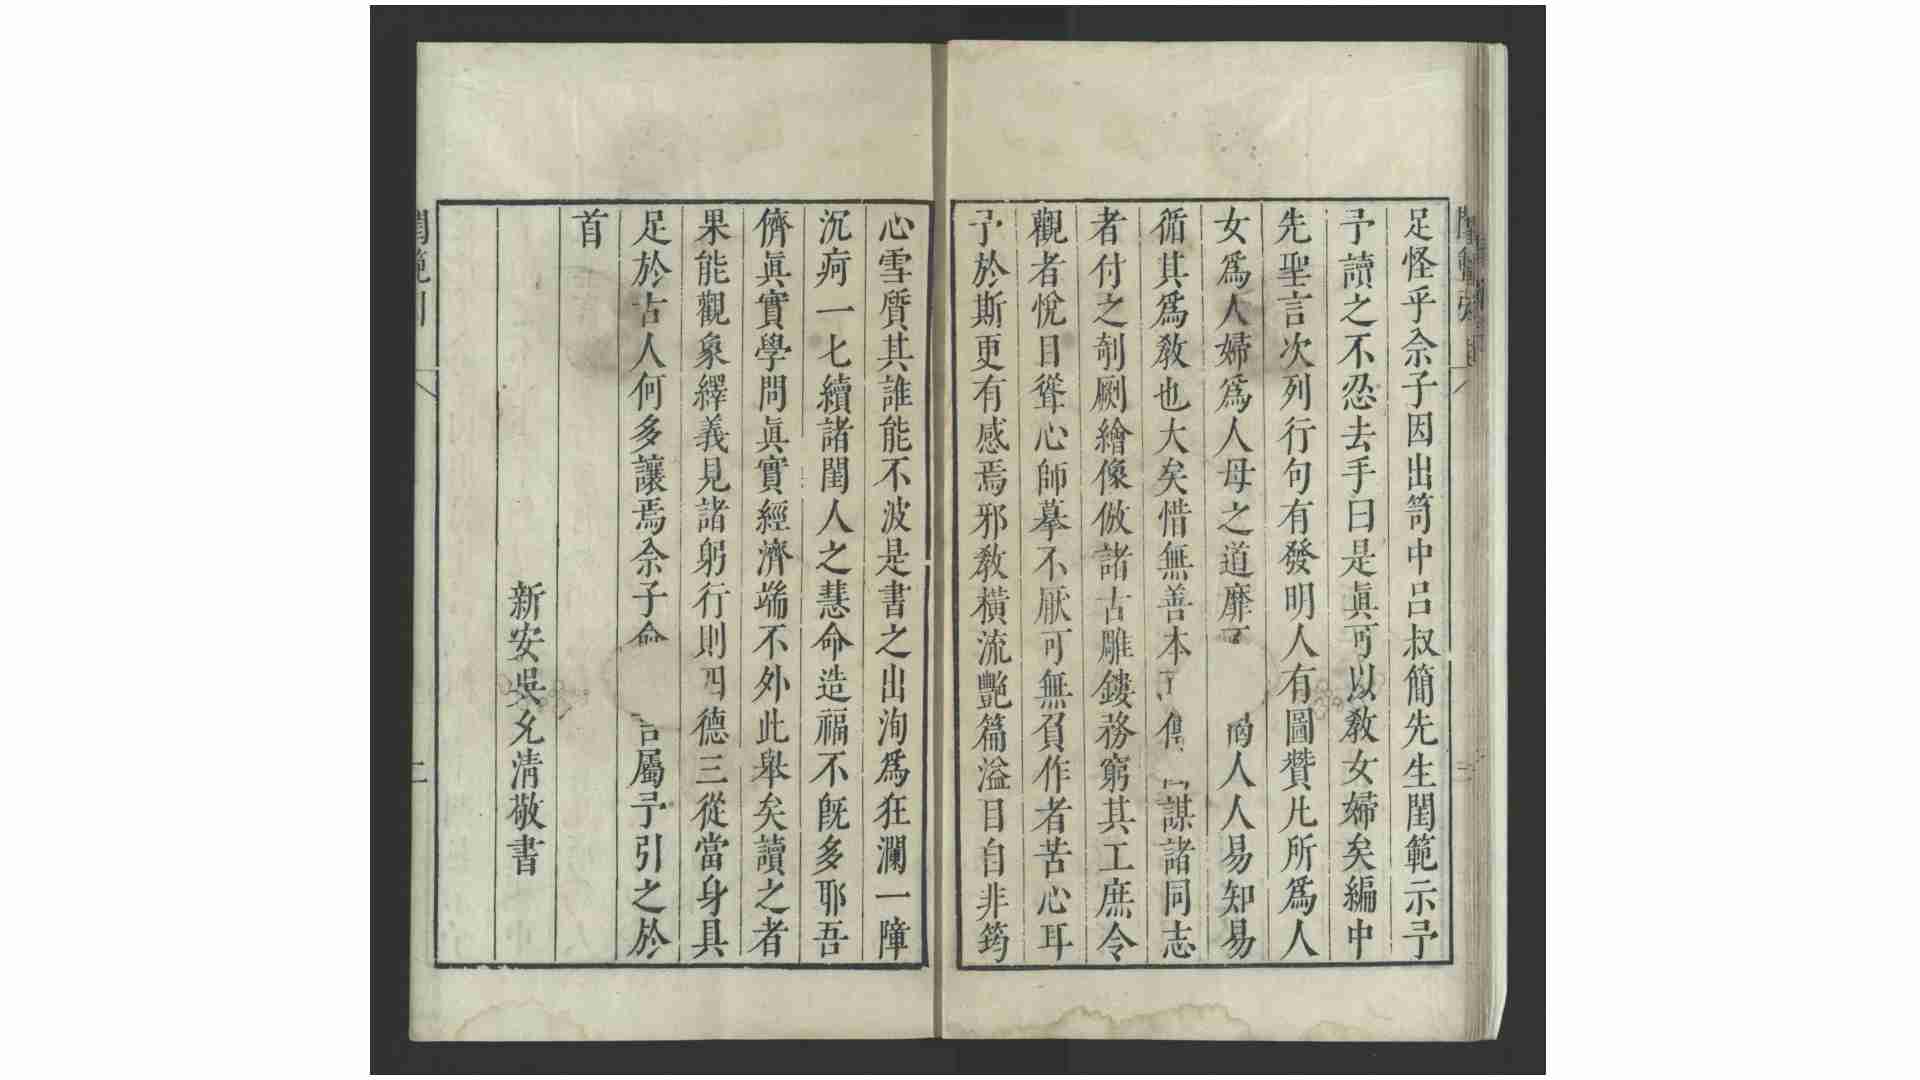 足怪乎佘子因出笥中吕叔簡先生閨範示予
予讀之不忍去手曰是眞可以教女婦矣編中
先聖言次列行句有發明人有圖贊凡所爲人
女爲人婦爲人母之道靡人人易知易
循其爲教也大矣惜無善本傳謀諸同志
者付之剞劂繪像倣諸古雕鏤務窮其工庶令
觀者悅目聳心師摹不厭可無負作者苦心耳
予於斯更有感焉邪教橫流艷篇溢目自非筠
心雪質其誰能不波是書之出洵爲狂瀾一障
沉疴一七續諸閨人之慧命造福不旣多耶吾
儕眞實學問眞實經濟端不外此舉矣讀之者
果能觀象繹義見諸躬行則四德三從當身具
足於古人何多讓焉佘子命言屬予引之於
首
新安吳允清敬書